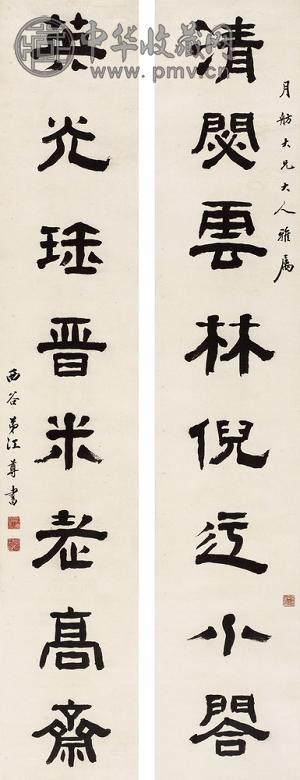 中华收藏网
www.pmv.cn
月舫大兄大人雅屬
清閟雲林倪迃小閤
英光珤晋米老髙齋
西谷弟江尊書